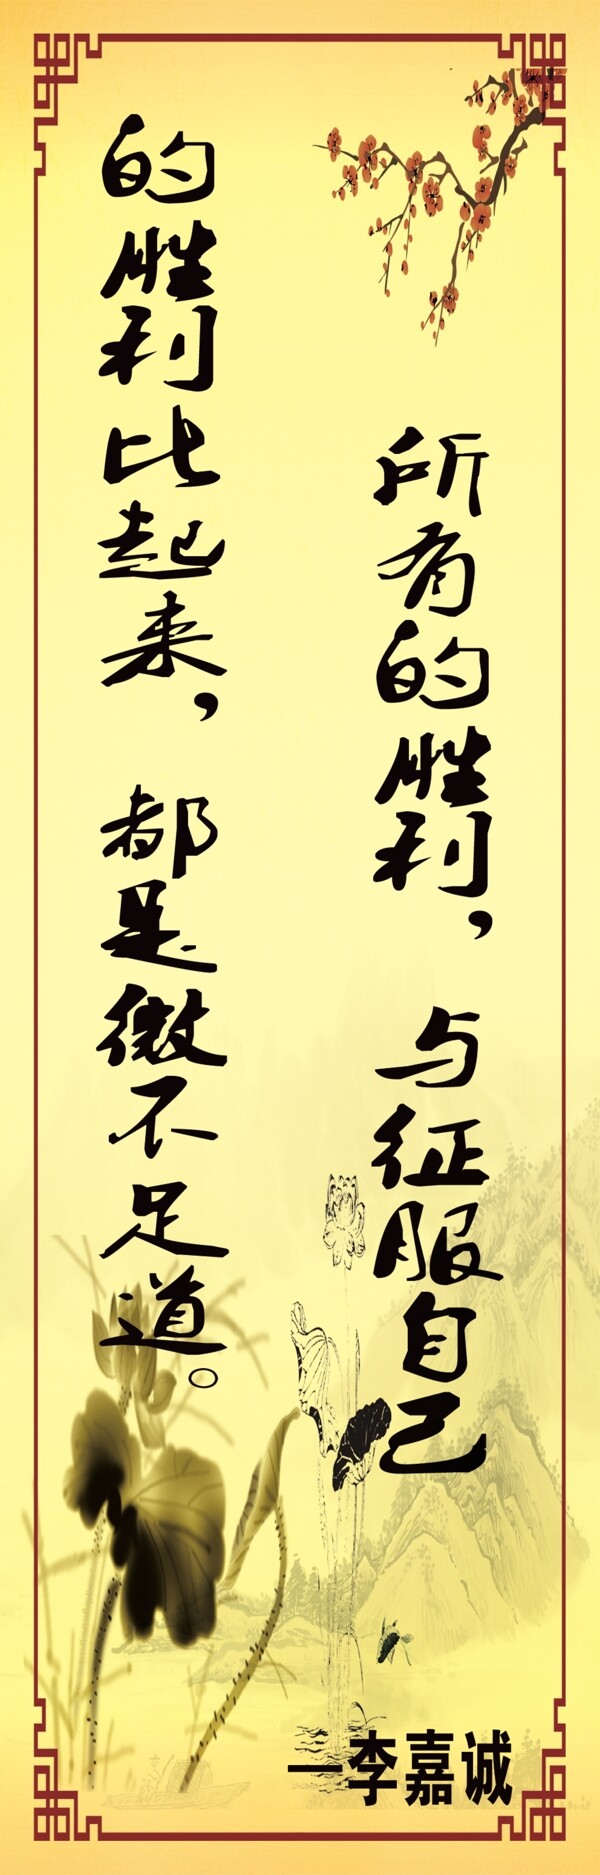 所有的胜利，与征服自己
的胜利比起来，都是微不足道。
—李嘉诚